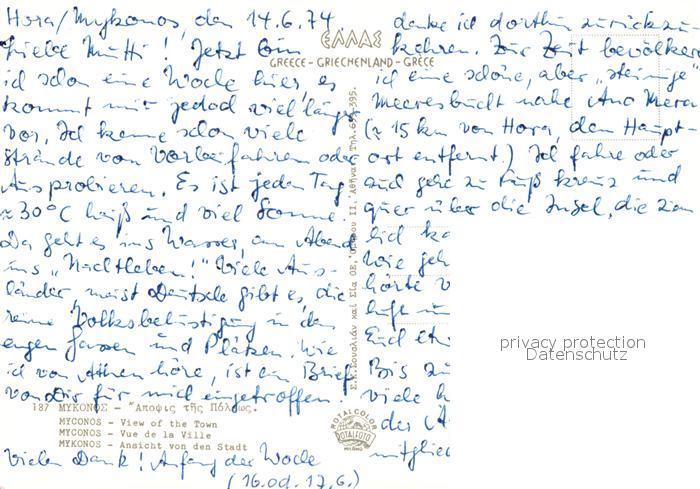 Hora/Mykonos, den 14.6.74
Liebe Mutti! Jetzt bin
ich schon eine Woche hier, es
kommt mir jedoch viel länger
vor. Ich kenne schon viele
Strände vom Vorbeifahren oder
Ausprobieren. Es ist jeden Tag
≈ 30°C heiß und viel Sonne.
Da geht es ins Wasser, am Abend
ins „Nachtleben!" Viele Aus-
länder, meist Deutsche gibt es, die
reine Volksbelustigung in den
engen Gassen und Plätzen. Wie
ich von Athen höre, ist ein Brief
von Dir für mich eingetroffen!
Vielen Dank! Anfang der Woche
(16. od. 17.6.)
ΕΛΛΑΣ
GREECE - GRIECHENLAND - GRECE
187 ΜΥΚΟΝΟΣ - "Αποψις τῆς Πόλεως.
MYCONOS - View of the Town
MYCONOS - Vue de la Ville
MYKONOS - Ansicht von den Stadt
ROTALCOLOR
ROTALFOTO
MILANO
denke ich dorthin zurückzu-
kehren. Zur Zeit bevölkere
ich eine schöne, aber „steinige"
Meeresbucht nahe Ano Mera
(≈ 15 km von Hora, dem Haupt-
ort entfernt.) Ich fahre oder
auch gehe zu Fuß kreuz und
quer über die Insel, die zem
lich
wie
hörte
Bis
viele
der
mitglied
privacy protection
Datenschutz